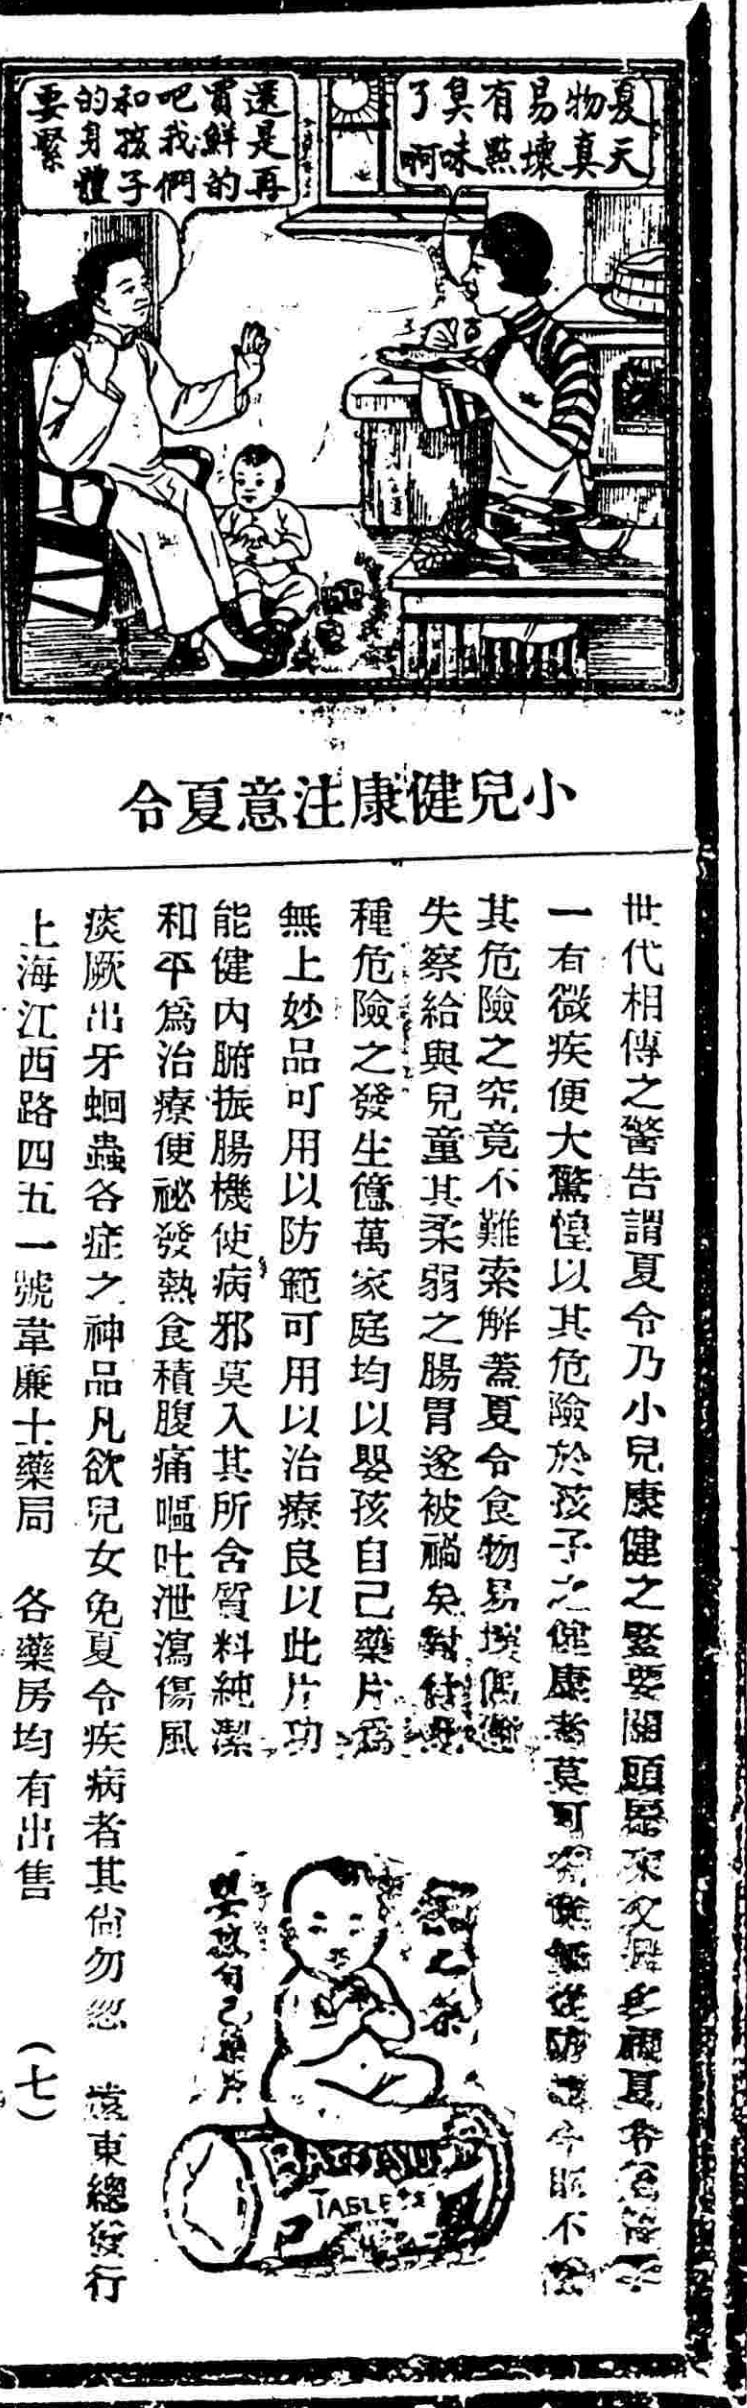 夏天
物真
易壞
有點
臭味
了啊
還是再
買鮮的
吧我們
和孩子
的身體
要緊
小兒健康注意夏令
世代相傳之警告謂夏令乃小兒康健之緊要關頭
一有微疾便大驚惶以其危險於孩子之健康者莫可
其危險之究竟不難索解蓋夏令食物易壞偶
失察給與兒童其柔弱之腸胃遂被禍矣對付
種危險之發生億萬家庭均以嬰孩自己藥片爲
無上妙品可用以防範可用以治療良以此片功
能健內腑振腸機使病邪莫入其所含質料純潔
和平爲治療便祕發熱食積腹痛嘔吐泄瀉傷風
痰厥出牙蛔蟲各症之神品凡欲兒女免夏令疾病者其尙勿忽 遠東總發行
上海江西路四五一號韋廉士藥局 各藥房均有出售 (七)
嬰孩自己藥片
TABLETS